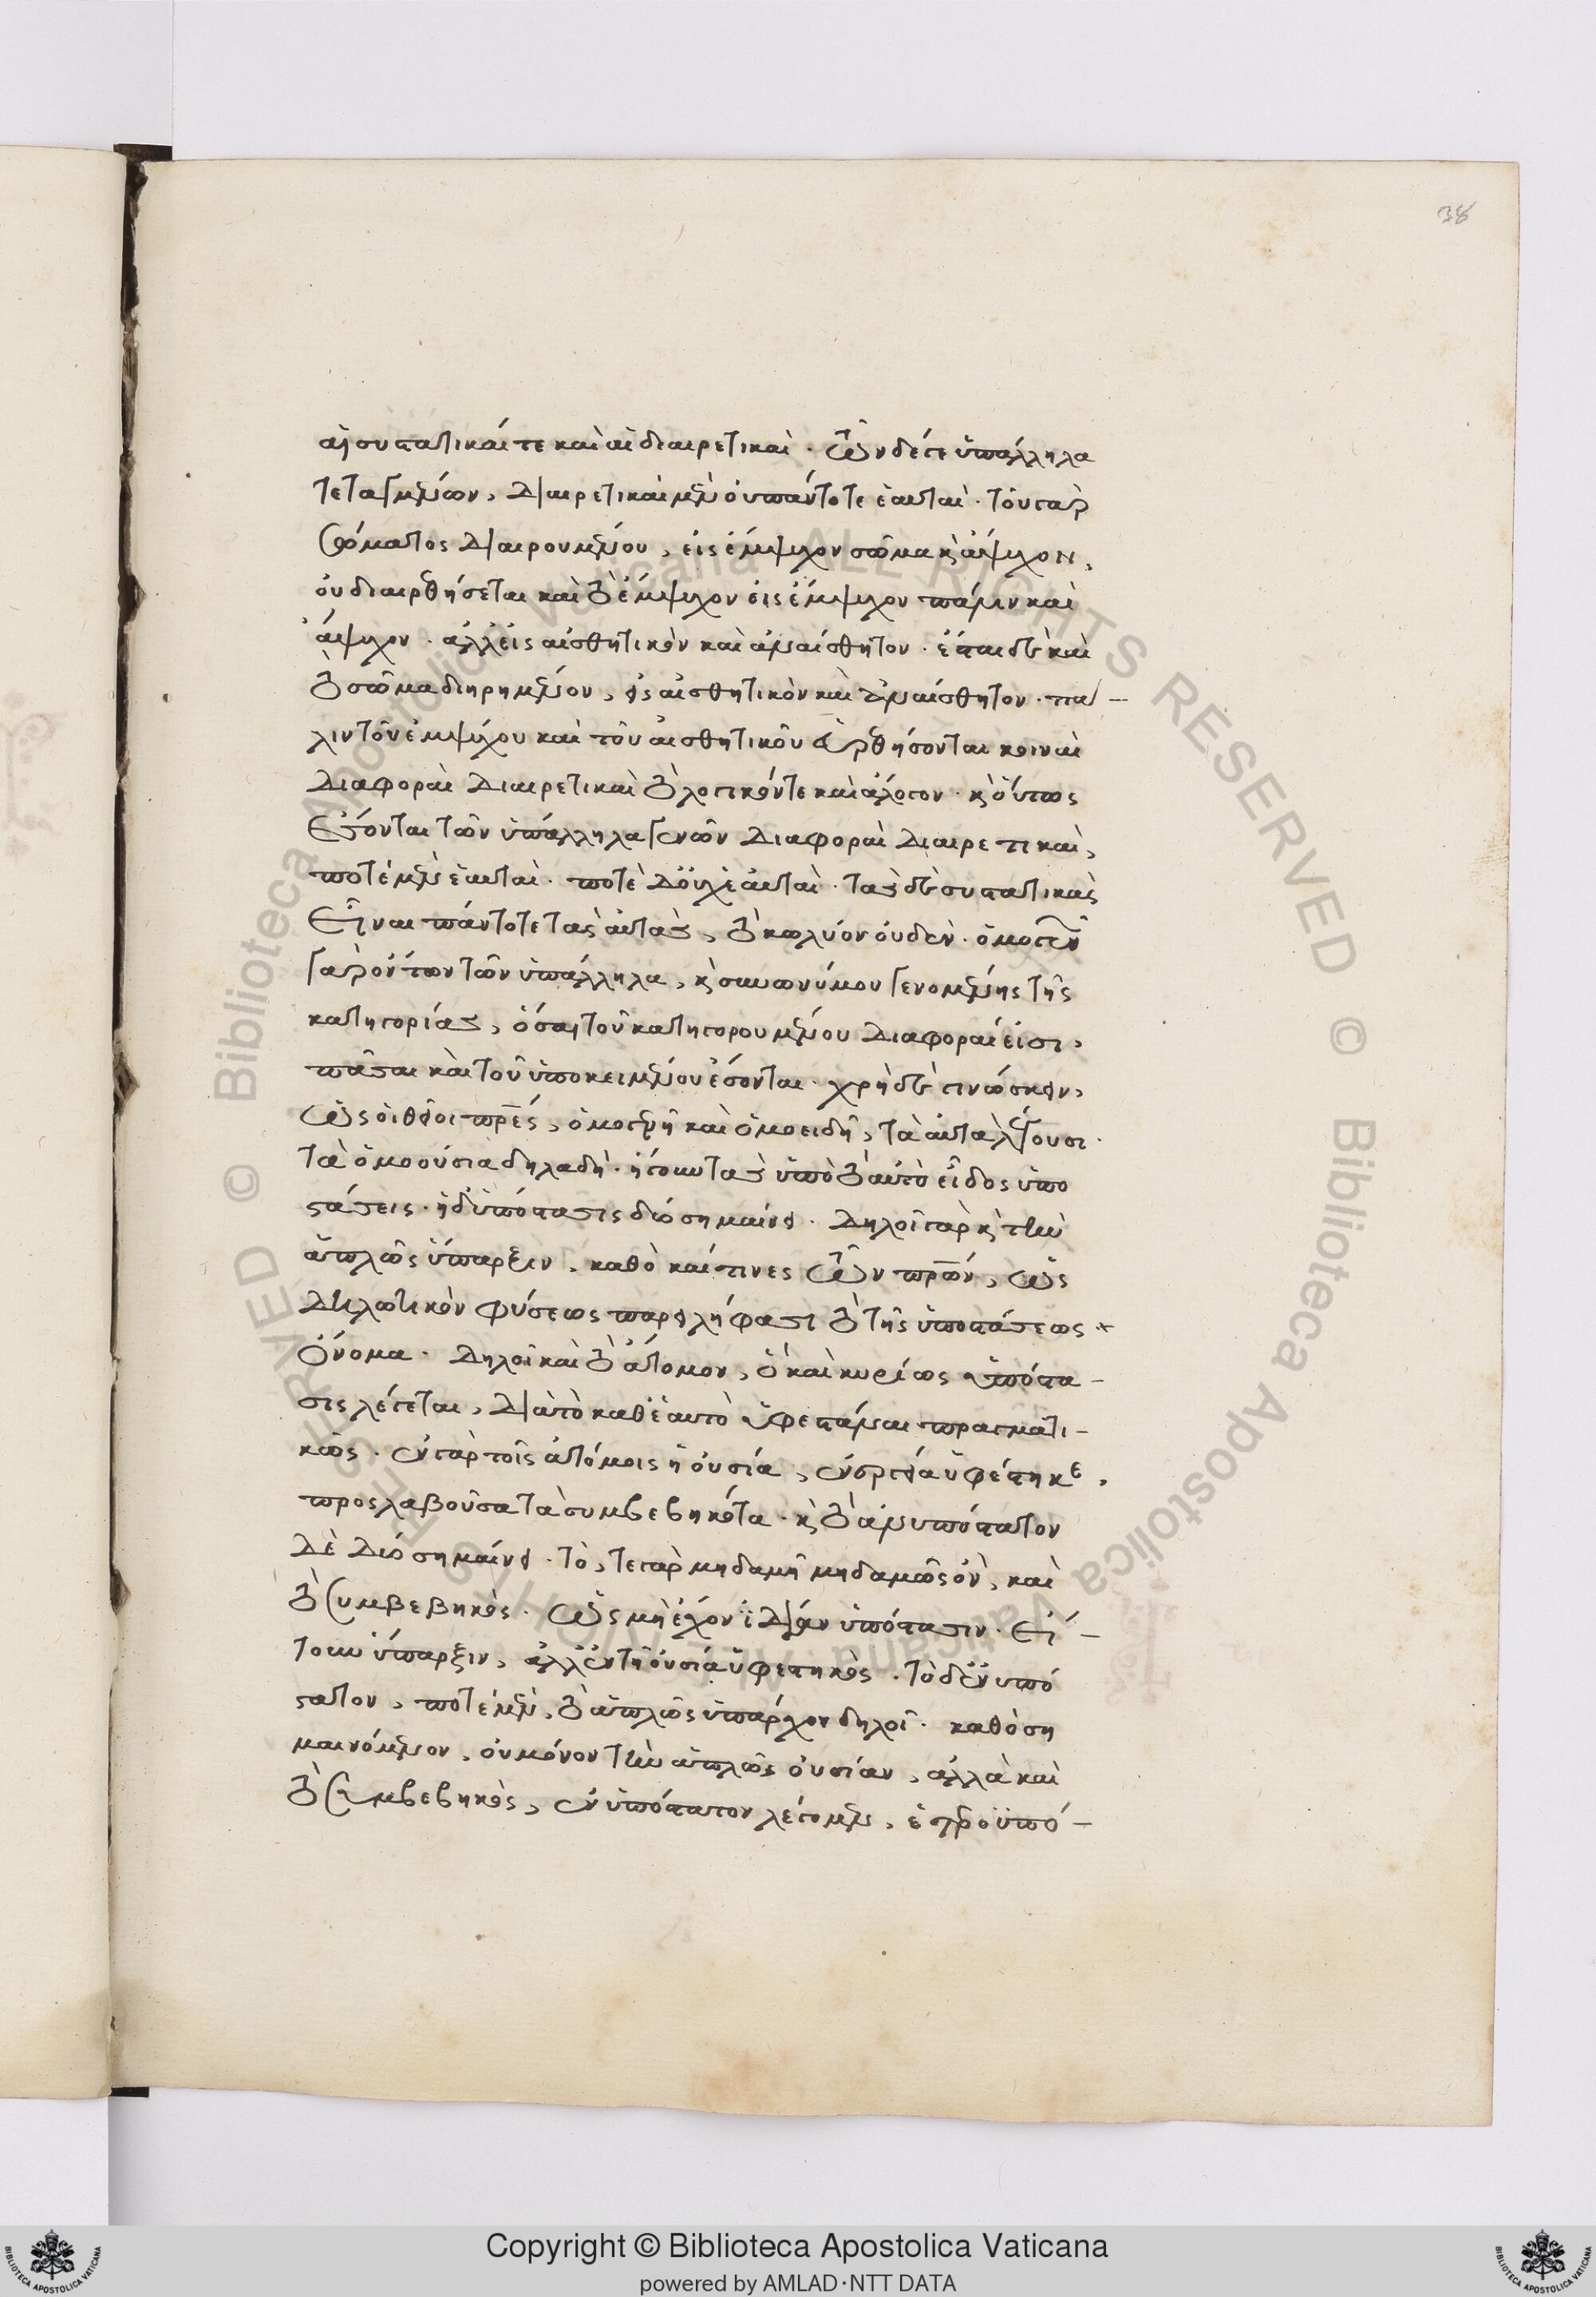 38
αἱ συστατικαί τε καὶ αἱ διαιρετικαὶ. τῶν δέ γε ὑπάλληλα
τεταγμένων, διαιρετικαὶ μὲν οὐ πάντοτε αἱ αὐταὶ. τοῦ γὰρ
σώματος διαιρουμένου, εἰς ἔμψυχον σῶμα κ(αὶ) ἄψυχον,
οὐ διαιρεθήσεται καὶ τὸ ἔμψυχον εἰς ἔμψυχον πάλιν καὶ
ἄψυχον. ἀλλ' εἰς αἰσθητικὸν καὶ ἀναίσθητον. ἔσται δὲ καὶ
τὸ σῶμα διῃρημένον, εἰς αἰσθητικὸν καὶ ἀναίσθητον. πά-
λιν τοῦ ἐμψύχου καὶ τοῦ αἰσθητικοῦ εὑρεθήσονται κοιναὶ
διαφοραὶ διαιρετικαὶ τὸ λογικόν τε καὶ ἄλογον. κ(αὶ) οὕτως
ἔσονται τῶν ὑπάλληλα γενῶν διαφοραὶ διαιρετικαὶ,
ποτὲ μὲν αἱ αὐταὶ. ποτὲ δ' οὐχὶ αἱ αὐταὶ. τὰς δὲ συστατικὰς
εἶναι πάντοτε τὰς αὐτὰς, τὸ κωλύον οὐδέν. ὁμογενῶν
γὰρ ὄντων τῶν ὑπάλληλα, κ(αὶ) συνωνύμου γενομένης τῆς
κατηγορίας, ὅσαι τοῦ κατηγορουμένου διαφοραί εἰσι,
πᾶσαι καὶ τοῦ ὑποκειμένου ἔσονται. χρὴ δὲ γινώσκειν,
ὡς οἱ θεῖοι πρες, ὁμογενῆ καὶ ὁμοειδῆ, τὰ αὐτὰ λέγουσι.
τὰ ὁμοούσια δηλαδὴ. ἤγουν τὰς ὑπὸ τὸ αὐτὸ εἶδος ὑπο
στάσεις. ἡ δ' ὑπόστασις δύο σημαίνει. δηλοῖ γὰρ κ(αὶ) τὴν
ἁπλῶς ὕπαρξιν, καθὸ καί τινες τῶν πρων, ὡς
δηλωτικὸν φύσεως παρειλήφασι τὸ τῆς ὑποστάσεως
ὄνομα. δηλοῖ καὶ τὸ ἄτομον, ὃ καὶ κυρίως ὑπόστα-
σις λέγεται, διὰ τὸ καθ' ἑαυτὸ ὑφεστάναι πραγματι-
κῶς. ἐν γὰρ τοῖς ἀτόμοις ἡ οὐσία, ἐνεργείᾳ ὑφέστηκε,
προσλαβοῦσα τὰ συμβεβηκότα. κ(αὶ) τὸ ἀνυπόστατον
δὲ δύο σημαίνει. τό, τε γὰρ μηδαμῆ μηδαμῶς ὂν, καὶ
τὸ συμβεβηκὸς. ὡς μὴ ἔχον ἰδίαν ὑπόστασιν. εἴ-
τουν ὕπαρξιν, ἀλλ' ἐν τῇ οὐσίᾳ ὑφεστηκὸς. τὸ δ' ἐνυπό
στατον, ποτὲ μὲν, τὸ ἁπλῶς ὑπάρχον δηλοῖ. καθὸ ση
μαινόμενον, οὐ μόνον τὴν ἁπλῶς οὐσίαν, ἀλλὰ καὶ
τὸ συμβεβηκὸς, ἐνυπόστατον λέγομεν, ἑτερουπό-